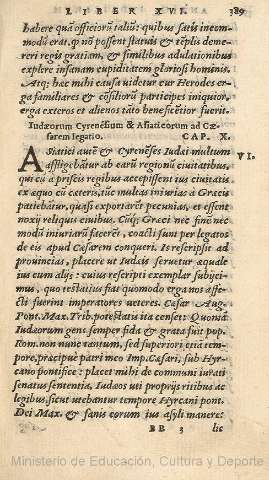 LIBER XVI. 389
habere quã officiorũ taliũ: quibus satis incom-
modũ erat, q̃ nõ possent statuis & tẽplis deme-
reri regis gratiam, & similibus adulationibus
explere insanam cupiditatem gloriosi hominis.
Atq; hac mihi causa uidetur cur Herodes er-
ga familiares & cõsiliorũ participes iniquior,
erga exteros et alienos tãto beneficẽtior fuerit.
Iudæorum Cyrenẽsium & Asiaticorum ad Cæ-
sarem legatio. CAP. X.
ASiatici autẽ & Cyrẽnẽses Iudæi multum VI.
affligebãtur ab earũ regionũ ciuitatibus,
qui cũ à priscis regibus accepissent ius ciuitatis
ex æquo cũ cæteris, tũc multas iniurias à Græcis
patiebãtur, quasi exportarẽt pecunias, et essent
noxij reliquis ciuibus. Cũq; Græci nec finẽ nec
modũ iniuriarũ facerẽt, coacti sunt per legatos
de eis apud Cæsarem conqueri. Is rescripsit ad
prouincias, placere ut Iudæis seruetur æquale
ius cum alijs: cuius rescripti exemplar subijci-
mus, quo testatius fiat quomodo erga nos affe-
cti fuerint imperatores ueteres. Cæsar Aug.
Pont. Max. Trib. potestatis ita censet: Quoniã
Iudæorum gens semper fida & grata fuit pop.
Rom. non nunc tantum, sed superiori etiã tem-
pore, præcipuè patri meo Imp. Cæsari, sub Hyr-
cano pontifice: placet mihi de communi iurati
senatus sententia, Iudæos uti proprijs ritibus ac
legibus, sicut utebantur tempore Hyrcani pont.
Dei Max. & fanis eorum ius asyli manere:
BB 3 sic
Ministerio de Educación, Cultura y Deporte